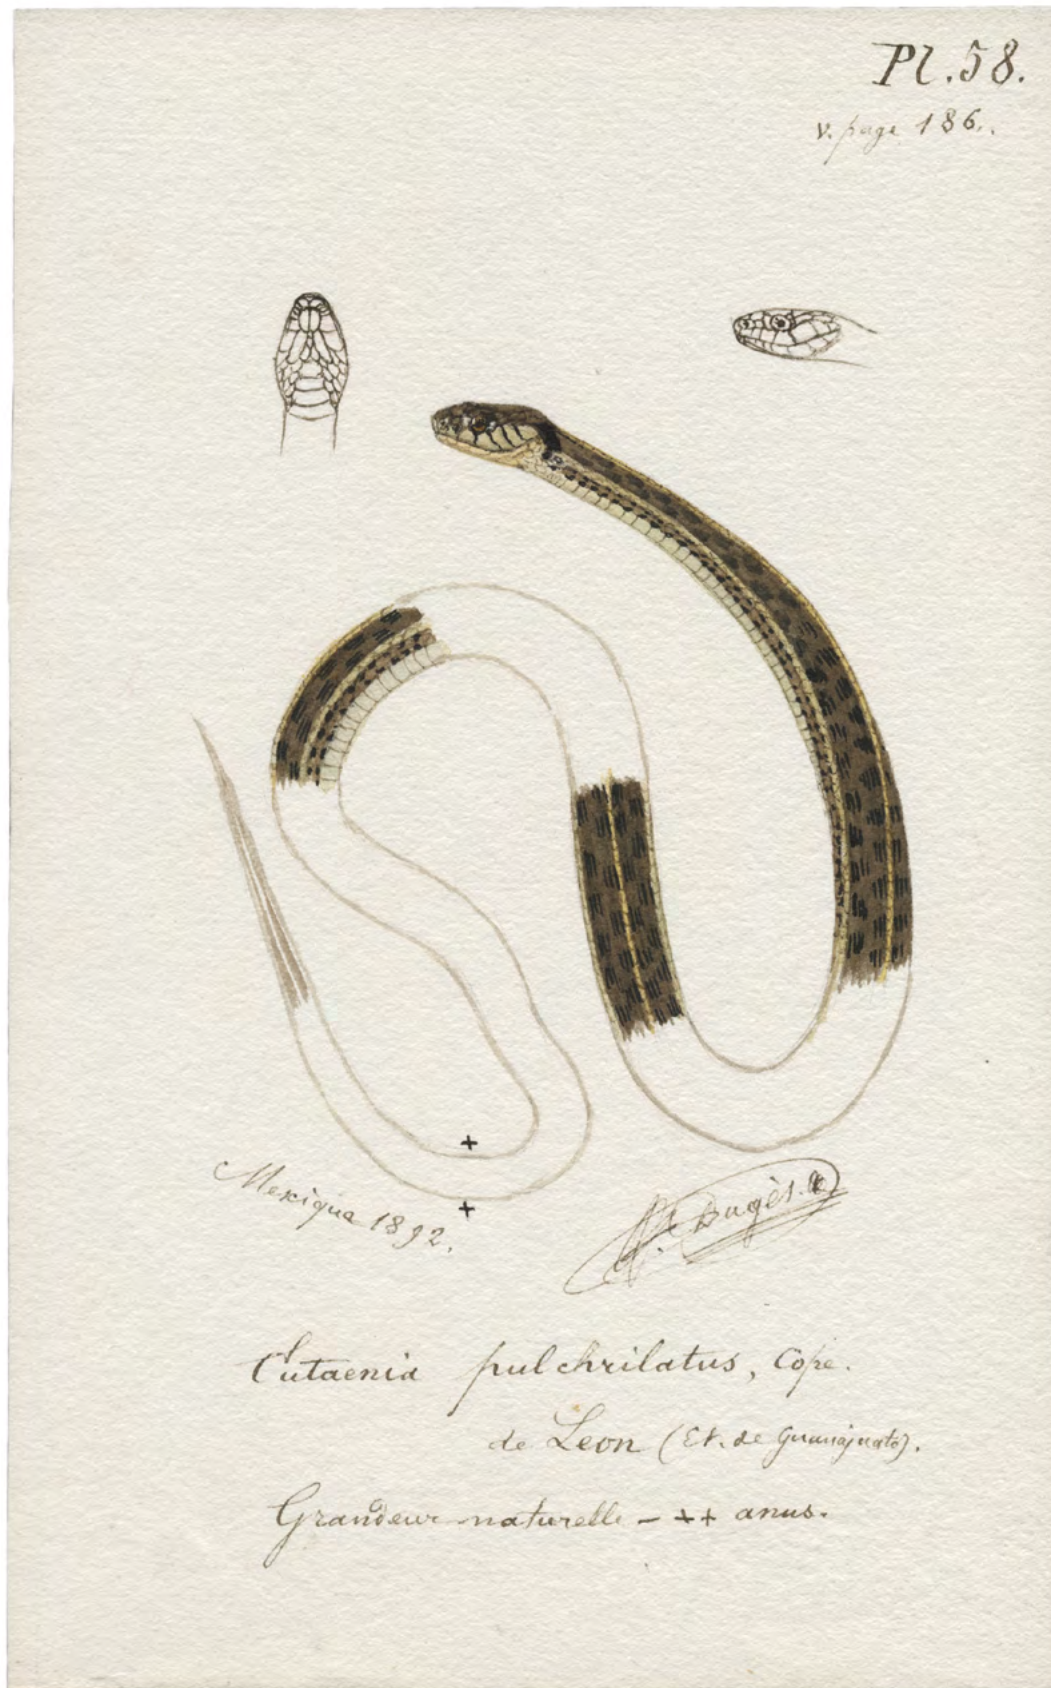 Pl. 58.
v. page 186.
+
+
Mexique 1892.
A. Dugès.
Eutaenia pulchrilatus, Cope.
de Leon (Et. de Guanajuato).
Grandeur naturelle - ++ anus.